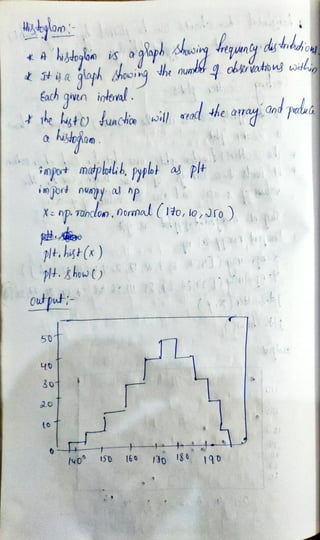 Histogram:-
* A histogram is a graph showing frequency distributions.
* It is a graph showing the number of observations within
each given interval.
* the hist() function will read the array and produce
a histogram.
import matplotlib.pyplot as plt
import numpy as np
x = np.random.normal (170, 10, 250)
plt.
plt.hist(x)
plt.show()
output:-
50
40
30
20
10
0
140 150 160 170 180 190